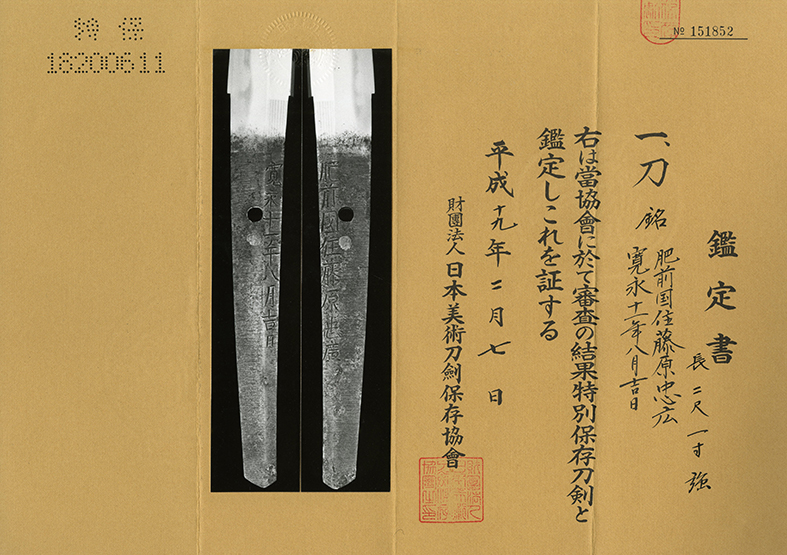 特 保
18200611
№ 151852
鑑定書
一、刀 銘 肥前国住藤原忠広
寛永十一年八月吉日
長二尺一寸強
右は當協會に於て審査の結果特別保存刀剣と
鑑定しこれを証する
平成十九年二月七日
財團法人 日本美術刀劍保存協會
肥前国住藤原忠廣
寛永十一年八月吉日